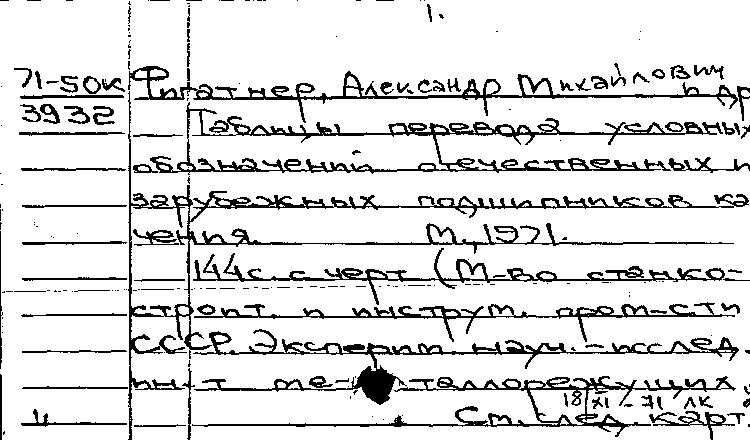 1.
71-50к Фигатнер, Александр Михайлович
3932 и др
Таблицы перевода условных
обозначений отечественных и
зарубежных подшипников ка
чения. М., 1971.
144 с. с черт (М-во станко-
строит. и инструм. пром-сти
СССР. Эксперим. науч.-исслед.
ин-т ме-таллорежущих
18/XI-71 ЛК
4 См. след. карт.